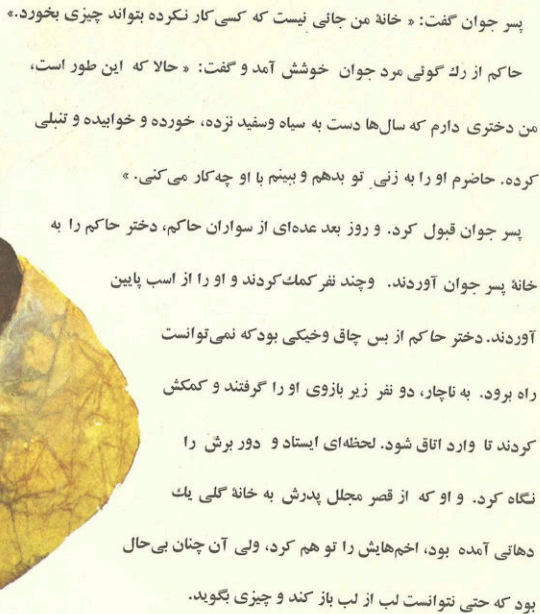 پسر جوان گفت: « خانهٔ من جائی نیست که کسی کار نکرده بتواند چیزی بخورد.»
حاکم از رك گوئی مرد جوان خوشش آمد و گفت: « حالا که این طور است،
من دختری دارم که سال‌ها دست به سیاه وسفید نزده، خورده و خوابیده و تنبلی
کرده. حاضرم او را به زنیِ تو بدهم و ببینم با او چه‌کار می‌کنی. »
پسر جوان قبول کرد. و روز بعد عده‌ای از سواران حاکم، دختر حاکم را به
خانهٔ پسر جوان آوردند. وچند نفر کمك کردند و او را از اسب پایین
آوردند. دختر حاکم از بس چاق وخیکی بودکه نمی‌توانست
راه برود. به ناچار، دو نفر زیر بازوی او را گرفتند و کمکش
کردند تا وارد اتاق شود. لحظه‌ای ایستاد و دور برش را
نگاه کرد. و او که از قصر مجلل پدرش به خانهٔ گلی یك
دهاتی آمده بود، اخم‌هایش را تو هم کرد، ولی آن چنان بی‌حال
بود که حتی نتوانست لب از لب باز کند و چیزی بگوید.